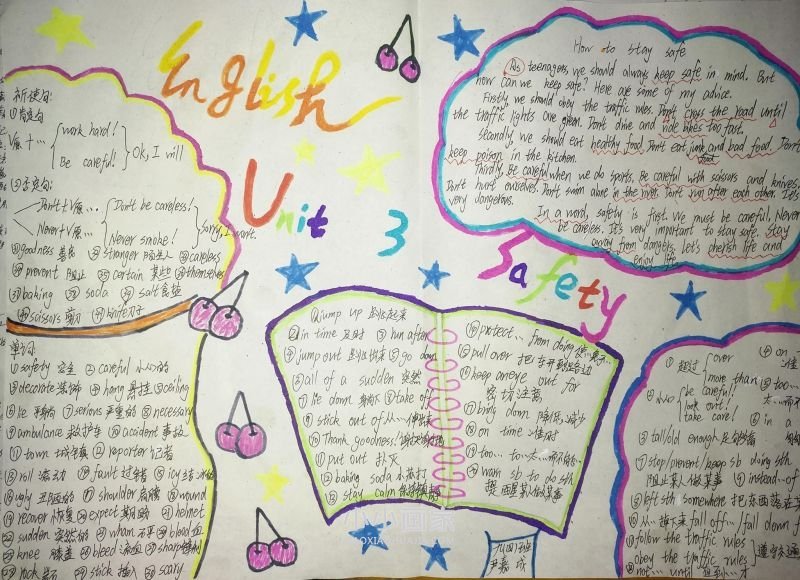 English
Unit 3
Safety
新授句:
①肯定句:
V原 + …
work hard!
Be careful!
Ok, I will
②否定句:
Don't+V原…
Never+V原…
Don't be careless!
Never smoke!
Sorry, I won't.
goodness 善良 stranger 陌生人 careless
prevent 阻止 certain 某些 themselves
baking soda salt 食盐
scissors 剪刀 knife 刀子
单词:
①safety 安全 ②careful 小心的
③decorate 装饰 ④hang 悬挂 ⑤ceiling
⑥lie 平躺 ⑦serious 严重的 ⑧necessary
⑨ambulance 救护车 ⑩accident 事故
⑪town 城镇 ⑫reporter 记者
⑬roll 滚动 fault 过错 icy 结冰的
ugly 丑陋的 shoulder 肩膀 wound
recover 恢复 expect 期盼 helmet
sudden 突然的 wham blood 血
knee 膝盖 bleed 流血 sharp
rock 岩石 stick 插入 scary
How to stay safe
As teenagers, we should always keep safe in mind. But
how can we keep safe? Here are some of my advice.
Firstly, we should obey the traffic rules. Don't cross the road until
the traffic lights are green. Don't drive and ride bikes too fast.
Secondly, we should eat healthy food. Don't eat junk and bad food. Don't
keep poison in the kitchen.
Thirdly, Be careful when we do sports. Be careful with scissors and knives.
Don't hurt ourselves. Don't swim alone in the river. Don't run after each other. It's
very dangerous.
In a word, safety is first. We must be careful. Never
be careless. It's very important to stay safe. Stay
away from dangers. Let's cherish life and
enjoy life.
①jump up 跳起来
②in time 及时 ③run after
④jump out 跳出来 ⑤go down
⑥all of a sudden 突然
⑦lie down 躺下 ⑧take off
⑨stick out of 从…伸出来
⑩Thank goodness!
⑪put out 扑灭
⑫baking soda 小苏打
⑬stay calm 保持冷静
protect… from doing
pull over 把车开到路边
keep an eye out for
密切注意
bring down 降低,减少
on time 准时
too… to…
warn sb to do sth
提醒某人做某事
①超过
over
more than
②小心
be careful!
look out!
take care!
③tall/old enough 足够
stop/prevent/keep sb doing sth
阻止某人做某事
instead of
left sth somewhere 把东西落在某
从…掉下来 fall off…/fall down f
follow the traffic rules
obey the traffic rules
遵守交通
not… until 直到…才
on
too…
in a
九四班
尹嘉成
小小画家
XIAOXIAOHUAJIA.COM